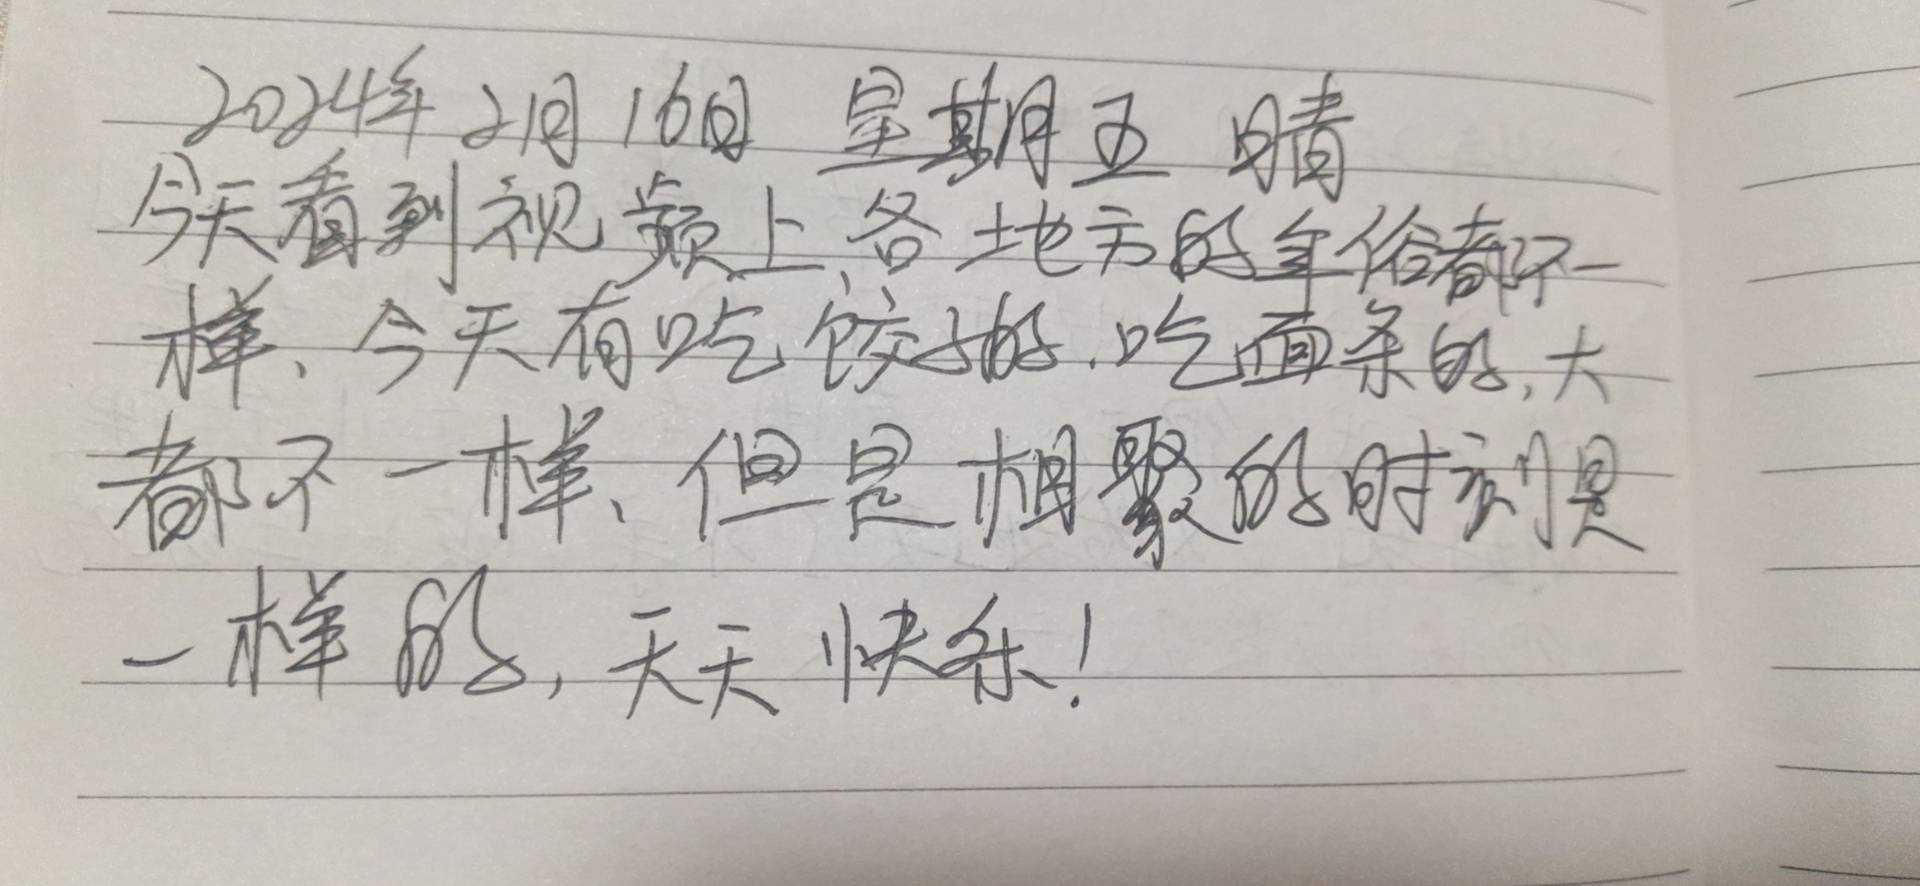 2024年2月16日 星期五 晴
今天看到视频上、各地方的年俗都不一
样、今天有吃饺子的.吃面条的,大
都不一样、但是相聚的时刻是
一样的,天天快乐!